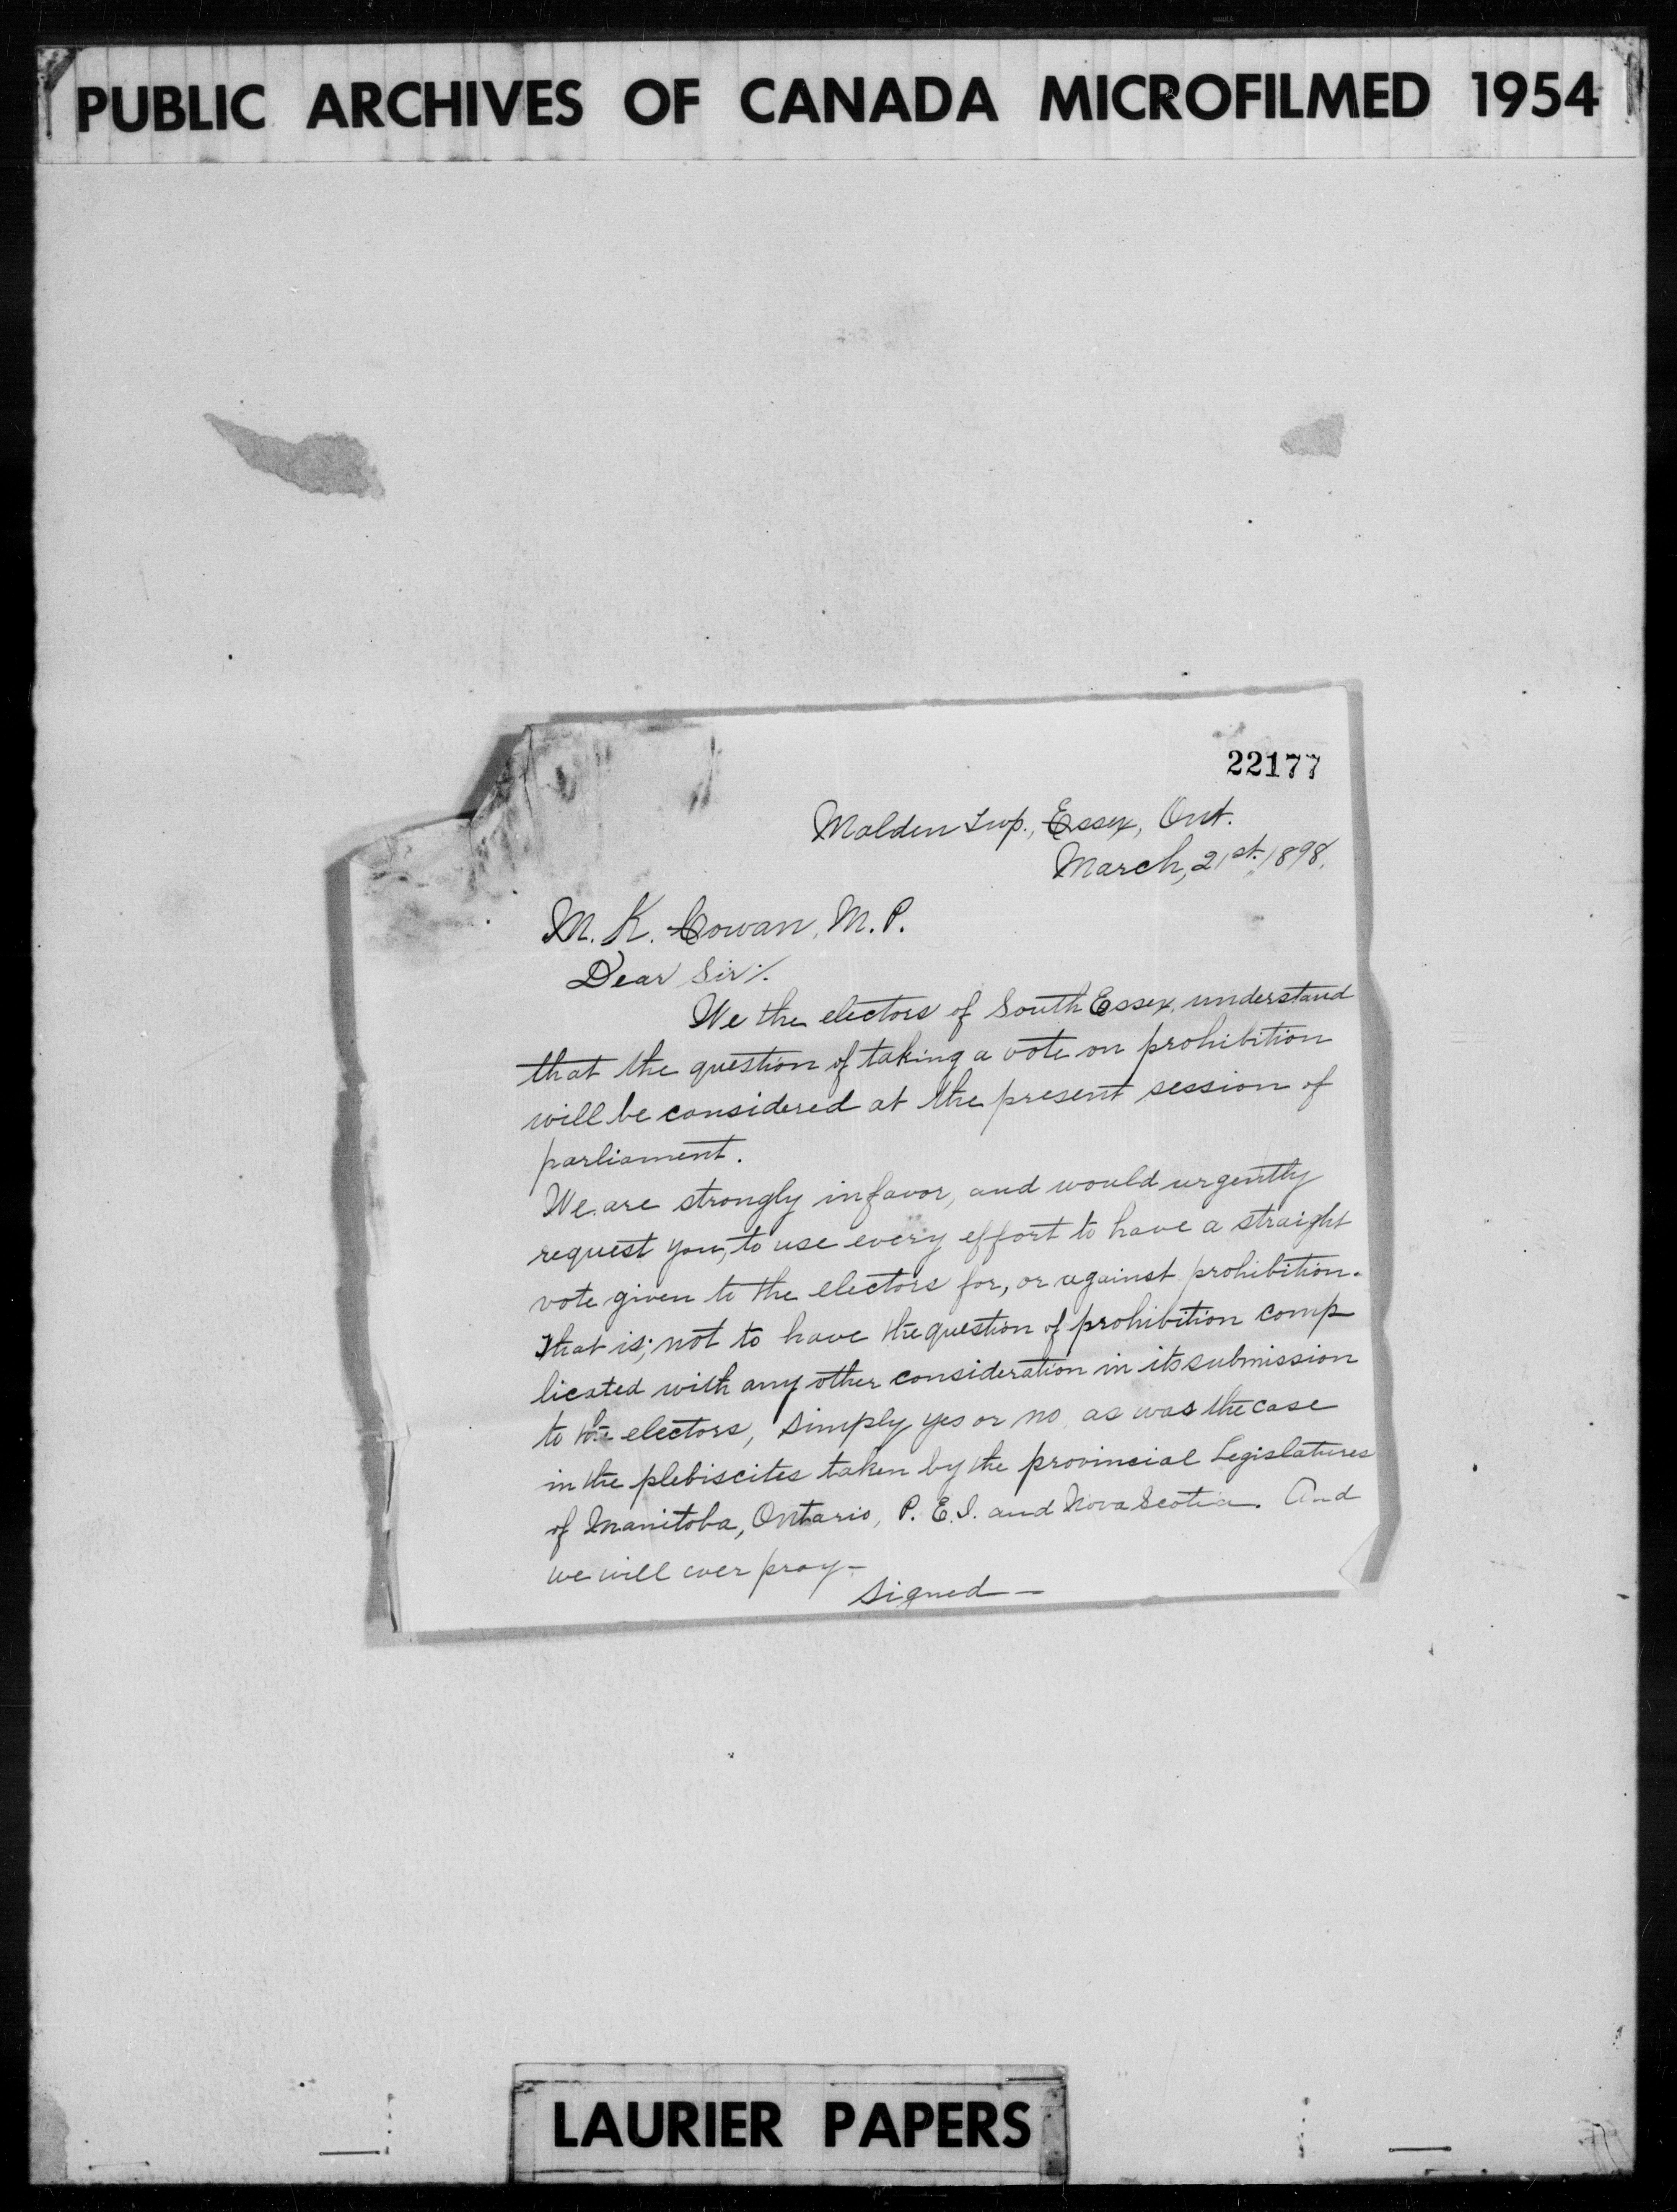 PUBLIC ARCHIVES OF CANADA MICROFILMED 1954
22177
Malden Twp., Essex, Ont.
March, 21st. 1898.
M. K. Cowan, M. P.
Dear Sir:
We the electors of South Essex, understand
that the question of taking a vote on prohibition
will be considered at the present session of
parliament.
We are strongly in favor, and would urgently
request you, to use every effort to have a straight
vote given to the electors for, or against prohibition.
That is; not to have the question of prohibition comp
licated with any other consideration in its submission
to the electors, simply yes or no as was the case
in the plebiscites taken by the provincial Legislatures
of Manitoba, Ontario, P. E. I. and Nova Scotia. And
we will ever pray-
Signed-
LAURIER PAPERS